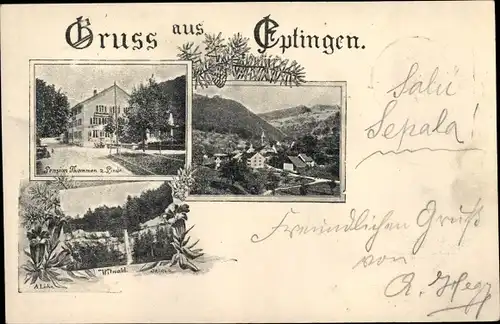 Gruss aus Eptingen.
Pension Thommen z. Bad.
Witwald.
Salü
Sepala!
Freundlichen Gruß
von
A. Hegg